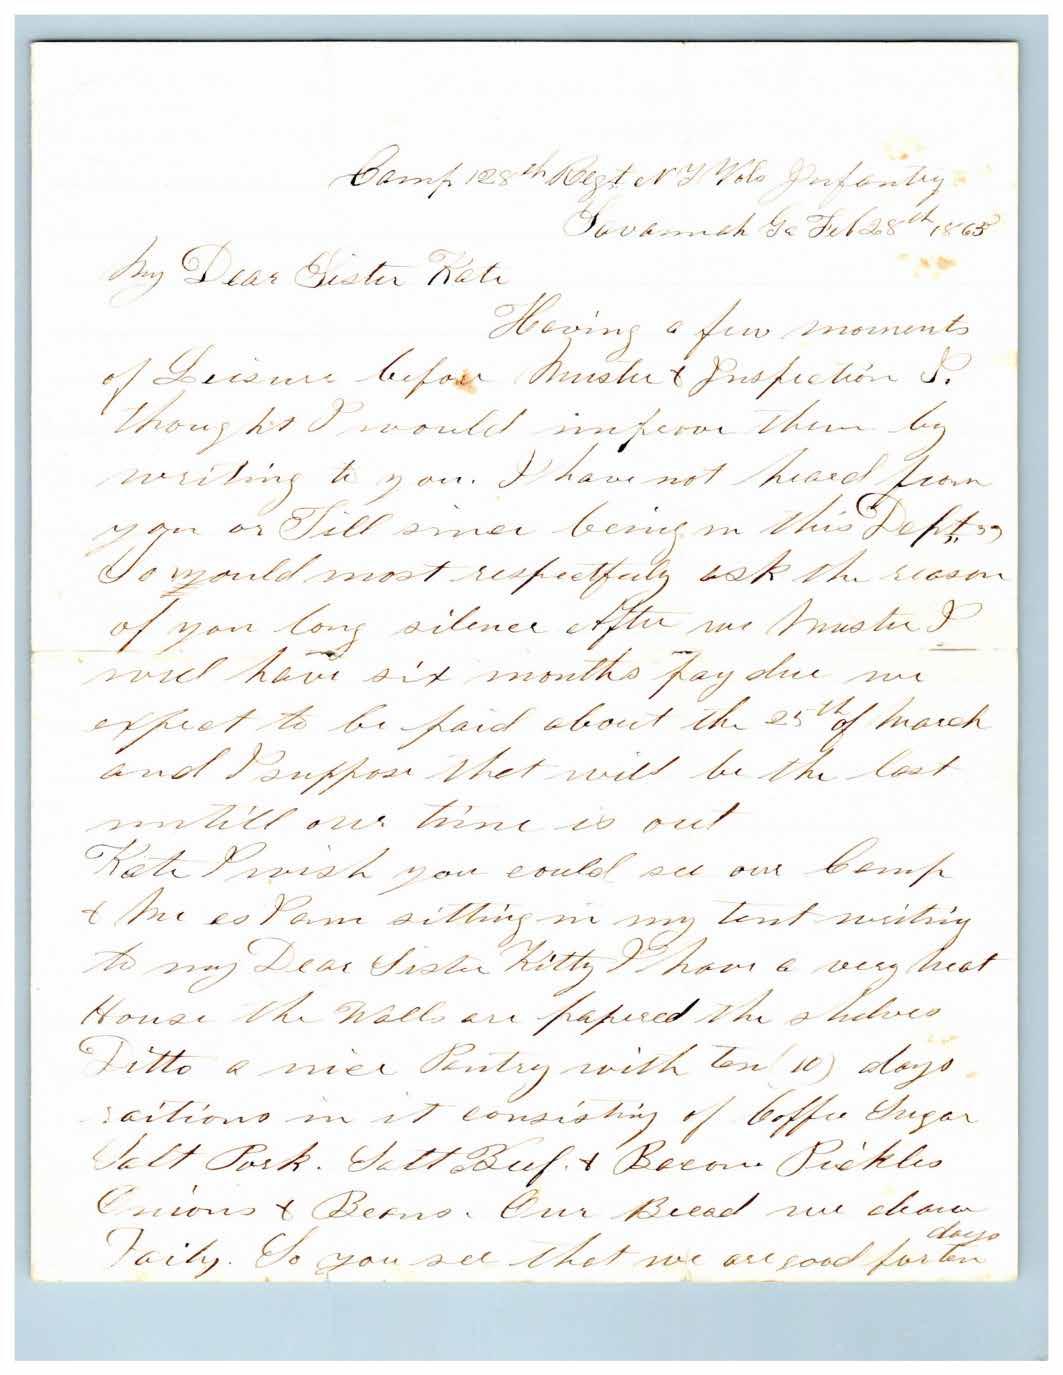 Camp 128th Regt N Y Vols Infantry
Savannah Ga Feb 28th 1865
My Dear Sister Kate
Having a few moments
of Leisure before Muster & Inspection I.
thought I would improve them by
writing to you. I have not heard from
you or Till since being in this Dept.
So would most respectfuly ask the reason
of you long silence After we Muster I
will have six months pay due we
expect to be paid about the 25th of March
and I suppose that will be the last
untill our time is out
Kate I wish you could see our Camp
& Me as I am sitting in my tent writing
to my Dear Sister Kitty I have a very neat
House the Walls are papered the shelves
Ditto a nice Pantry with ten (10) days
raitions in it consisting of Coffee Sugar
Salt Pork. Salt Beef. & Bacon Pickles
Onions & Beans. Our Bread we draw
Daily. So you see that we are good for ten
days